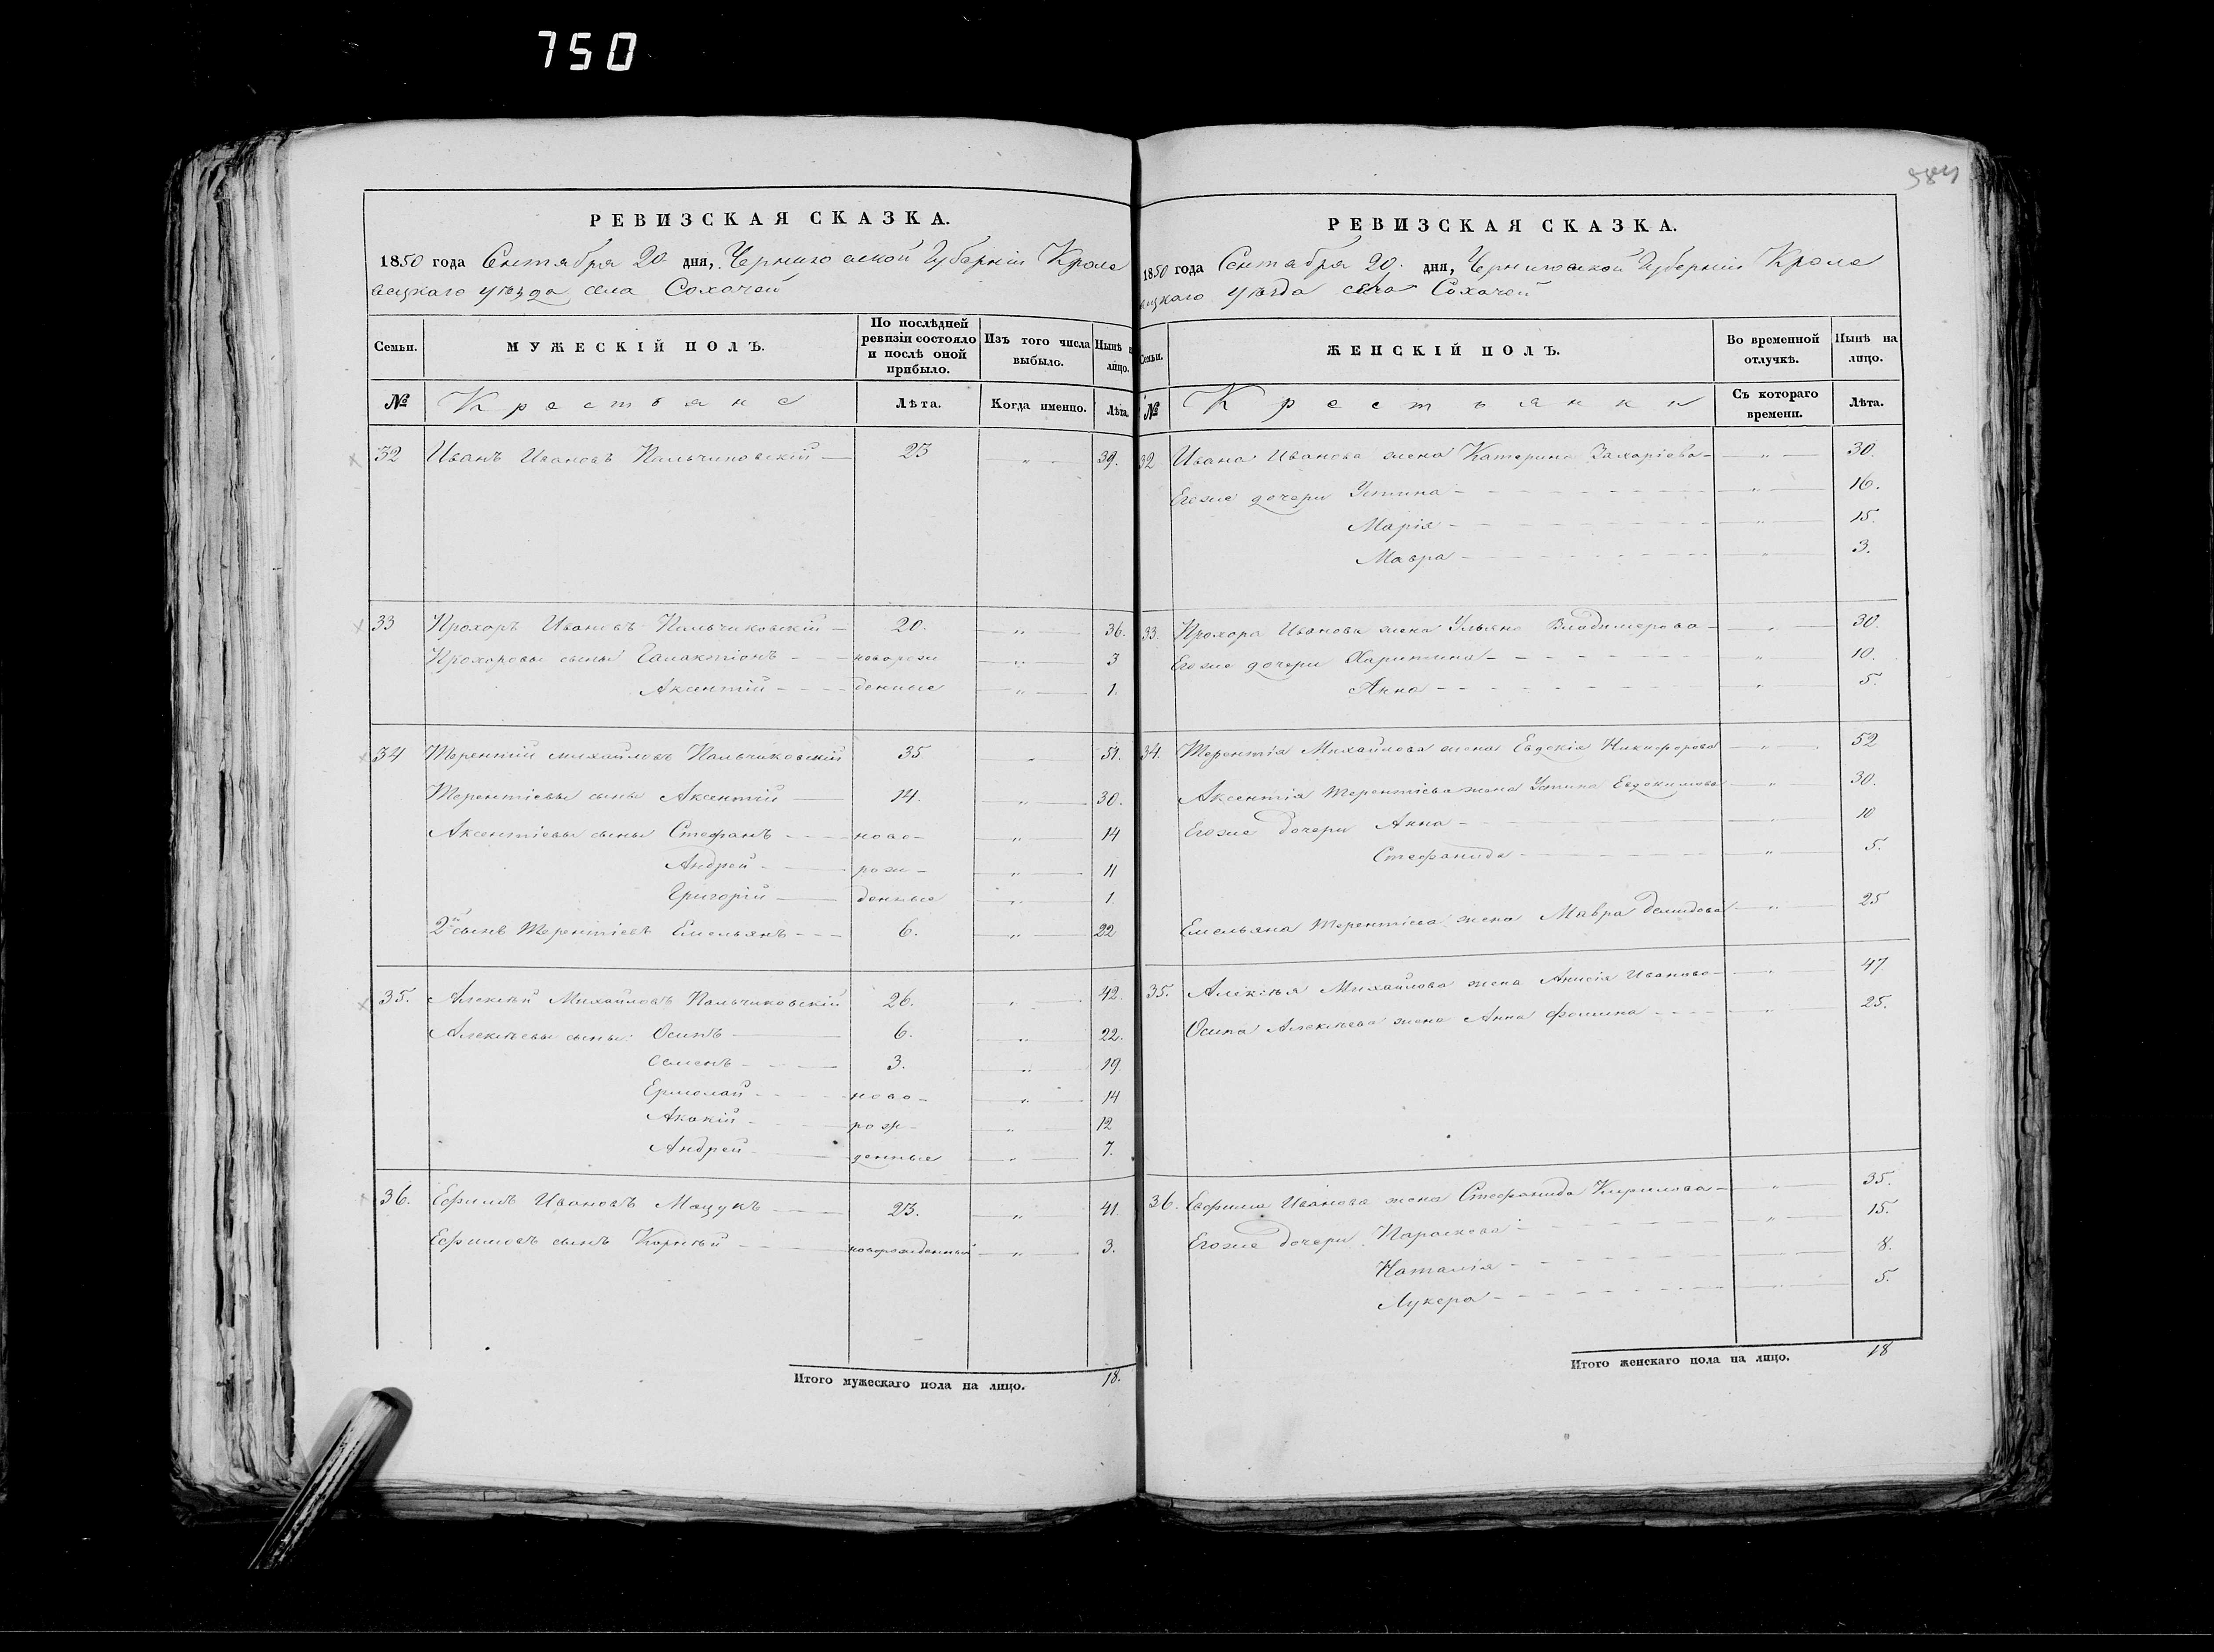 750
584
РЕВИЗСКАЯ СКАЗКА.
1850 года Сентября 20 дня, Черниговской Губерніи Кроле
вецкаго уѣзда села Сохачей
Семьи.
МУЖЕСКІЙ ПОЛЪ.
По послѣдней ревизіи состояло и послѣ оной прибыло.
Изъ того числа выбыло.
Нынѣ на лицо.
№ Крестьяне Лѣта. Когда именно. Лѣта.
32 Иванъ Ивановъ Пальчиковскій — 23 — „ — 39.
33 Прохоръ Ивановъ Пальчиковскій — 20. — „ — 36.
Прохоровы сыны Галактіонъ — новорож — „ — 3
Аксентій — денные — „ — 1.
34 Терентій Михайловъ Пальчиковскій 35 — „ — 51.
Терентіевы сыны Аксентій — 14. — „ — 30.
Аксентіевы сыны Стефанъ — ново- — „ — 14
Андрей — рож- — „ — 11
Григорій — денные — „ — 1
2й сынъ Терентіевъ Емельянъ — 6. — „ — 22
35. Алексѣй Михайловъ Пальчиковскій 26. — „ — 42.
Алексѣевы сыны: Осипъ — 6. — „ — 22.
Семенъ — 3. — „ — 19.
Ермолай — ново- — „ — 14
Акакій — рож- — „ — 12
Андрей — денные — „ — 7.
36. Ефимъ Ивановъ Мацукъ — 23. — „ — 41.
Ефимовъ сынъ Корнѣй — новорожденный — „ — 3.
Итого мужескаго пола на лицо. 18.
РЕВИЗСКАЯ СКАЗКА.
1850 года Сентября 20. дня, Черниговской Губерніи Кроле
вецкаго уѣзда села Сохачей
Семьи.
ЖЕНСКІЙ ПОЛЪ.
Во временной отлучкѣ.
Нынѣ на лицо.
№ Крестьянки Съ котораго времени. Лѣта.
32 Ивана Иванова жена Катерина Захаріева — „ — 30.
Егоже дочери Устина — „ — 16.
Марія — „ — 15.
Мавра — „ — 3.
33. Прохора Иванова жена Ульяна Владимерова — „ — 30.
Егоже дочери Харитина — „ — 10.
Анна — „ — 5.
34. Терентія Михайлова жена Евдокія Никифорова — „ — 52
Аксентія Терентіева жена Устина Евдокимова — „ — 30.
Егоже дочери Анна — „ — 10
Стефанида — „ — 5.
Емельяна Терентіева жена Мавра Демидова — „ — 25
35. Алексѣя Михайлова жена Анисія Иванова — „ — 47
Осипа Алексѣева жена Анна Фомина — „ — 25.
36. Ефима Иванова жена Стефанида Кирилова — „ — 35.
Егоже дочери Параскева — „ — 15.
Наталія — „ — 8.
Лукера — „ — 5.
Итого женскаго пола на лицо. 18